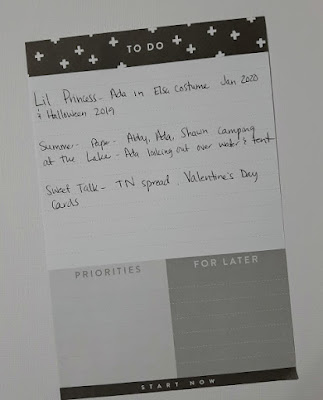 TO DO
Lil Princess - Ada in Elsa Costume Jan 2020
& Halloween 2019
Summer - Paper - Abby, Ada, Shawn Camping
at the Lake - Ada looking out over water & tent
Sweet Talk - TN spread, Valentine's Day
Cards
PRIORITIES
FOR LATER
START NOW